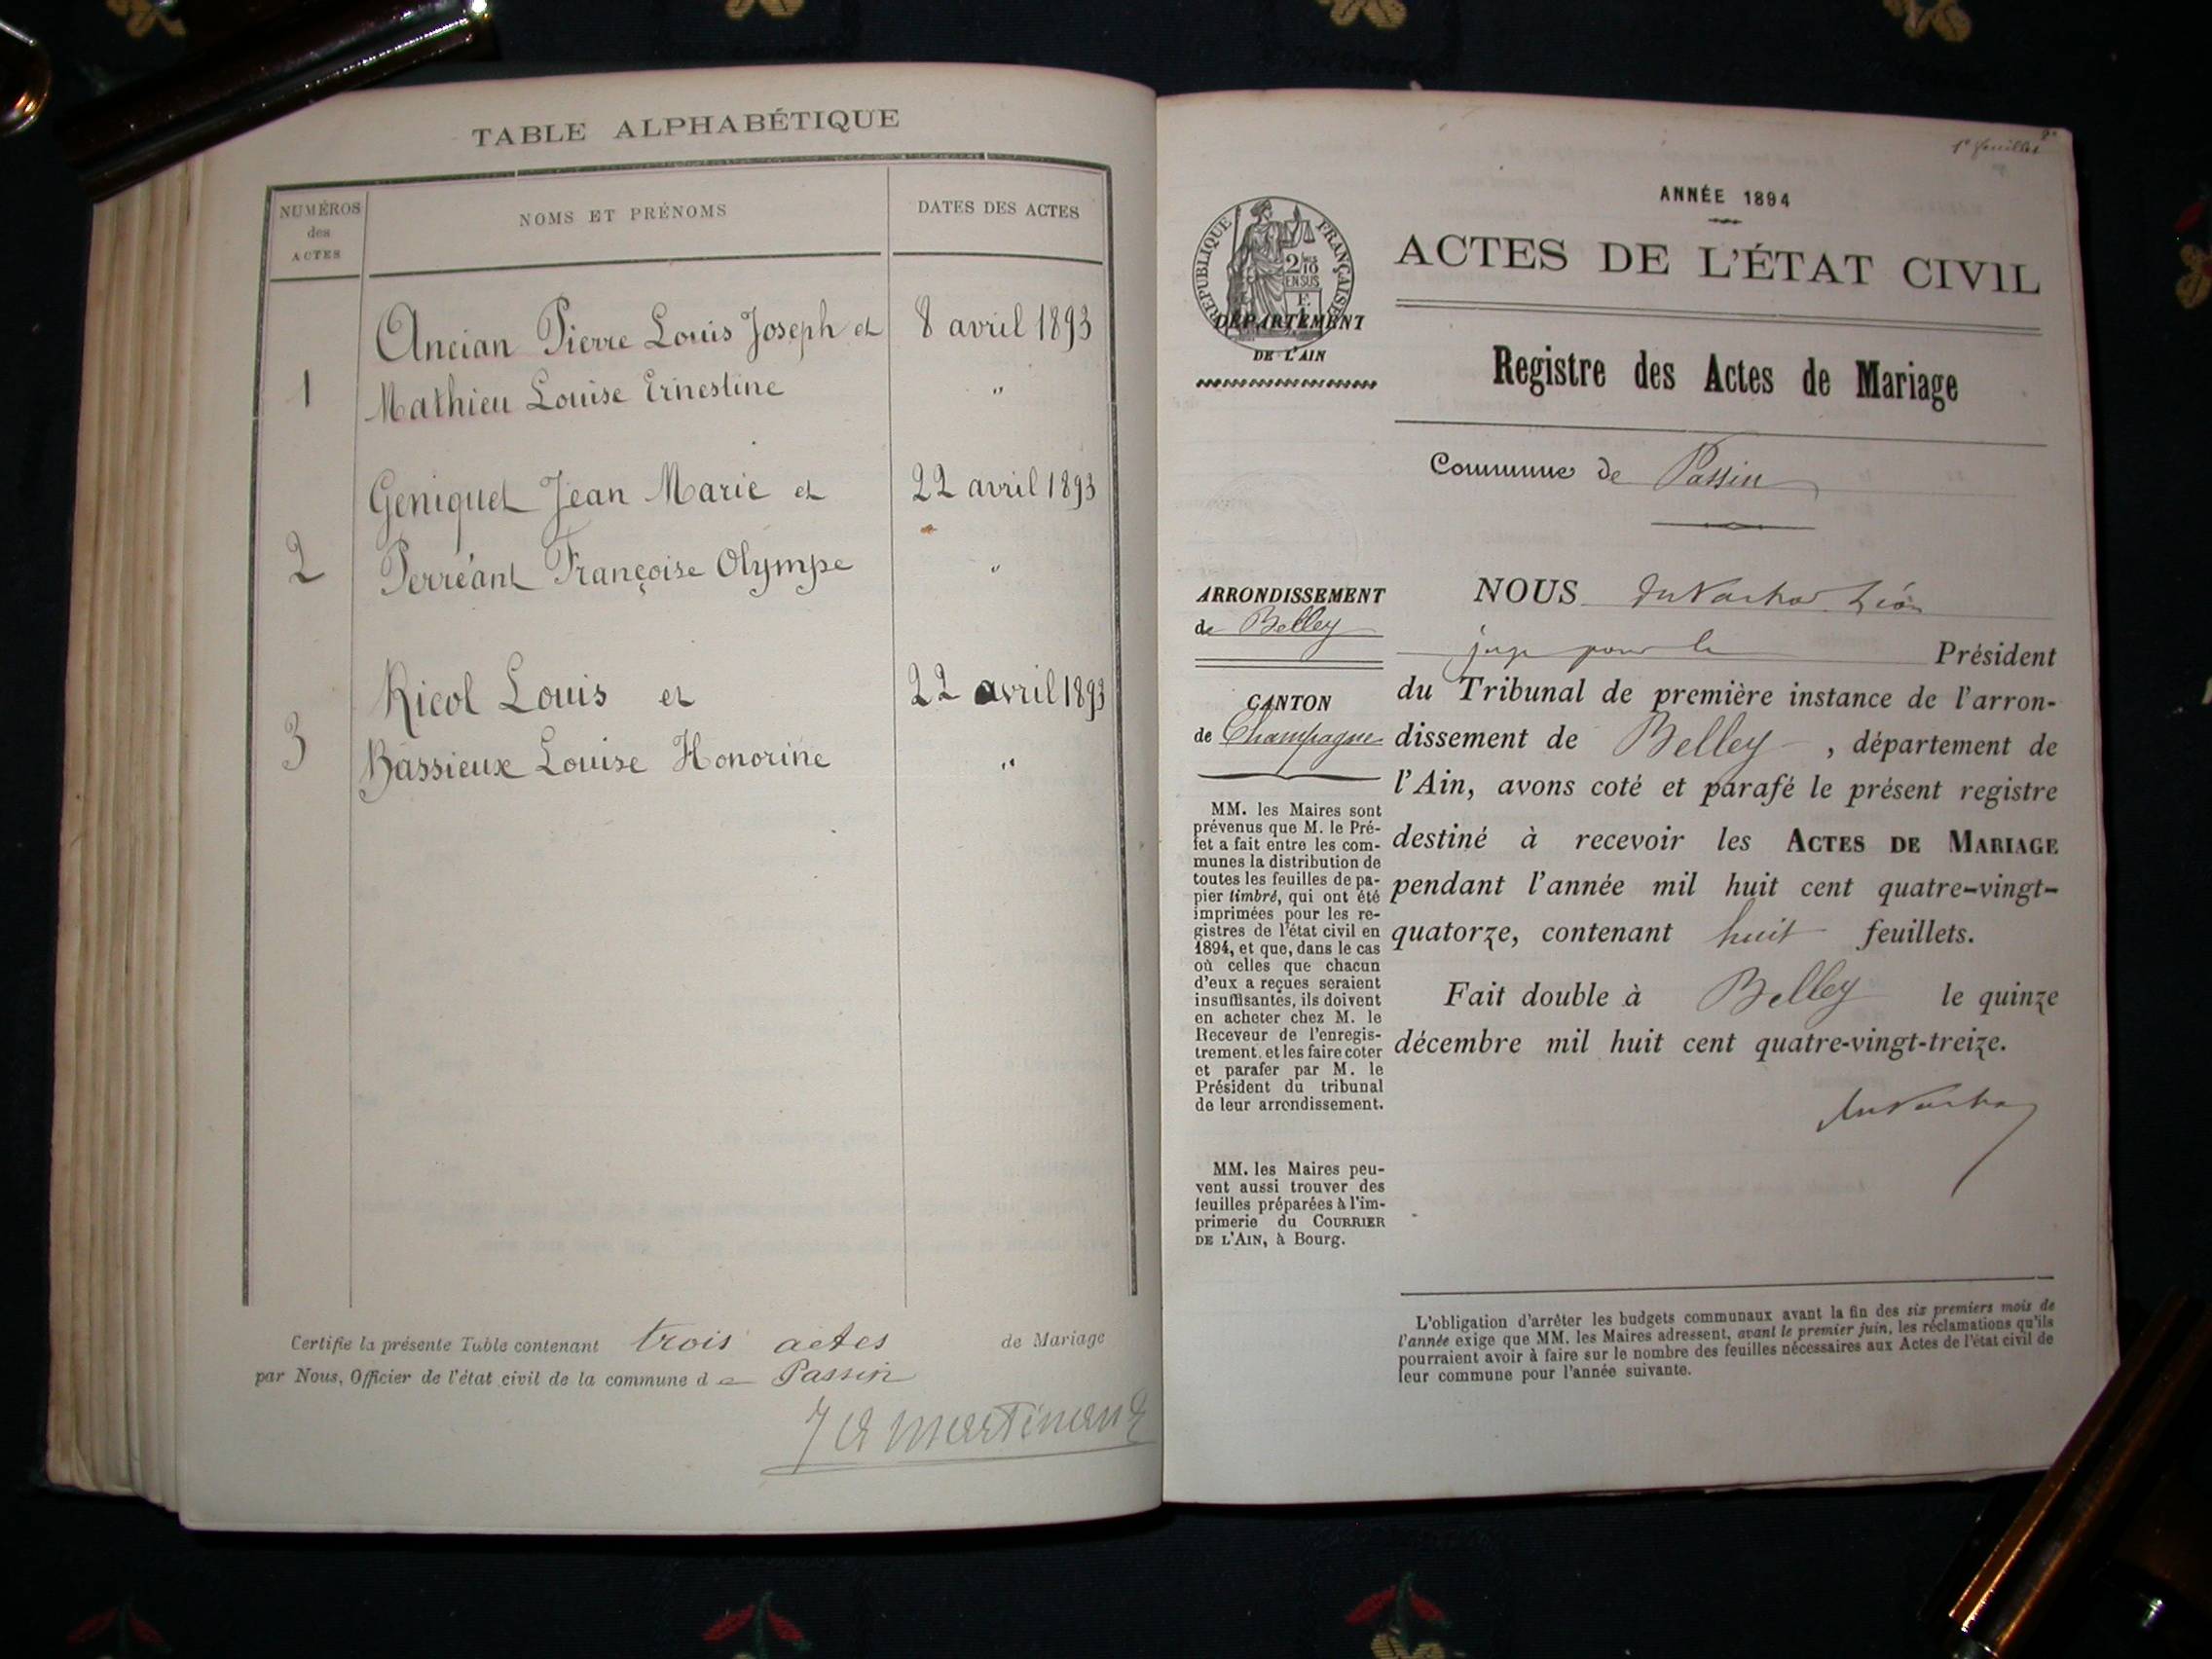 TABLE ALPHABÉTIQUE
NUMÉROS
des
ACTES
NOMS ET PRÉNOMS
DATES DES ACTES
Ancian Pierre Louis Joseph et 8 avril 1893
1 Mathieu Louise Ernestine "
Geniquet Jean Marie et 22 avril 1893
2 Perréant Françoise Olympe "
Ricol Louis et 22 avril 1893
3 Bassieux Louise Honorine "
Certifie la présente Table contenant trois actes de Mariage
par Nous, Officier de l'état civil de la commune de Passin
Martinand
1er feuillet
ANNÉE 1894
ACTES DE L'ÉTAT CIVIL
RÉPUBLIQUE FRANÇAISE
2/10
EN SUS
DÉPARTEMENT
DE L'AIN
Registre des Actes de Mariage
Commune de Passin
ARRONDISSEMENT
de Belley
CANTON
de Champagne
MM. les Maires sont
prévenus que M. le Pré-
fet a fait entre les com-
munes la distribution de
toutes les feuilles de pa-
pier timbré, qui ont été
imprimées pour les re-
gistres de l'état civil en
1894, et que, dans le cas
où celles que chacun
d'eux a reçues seraient
insuffisantes, ils doivent
en acheter chez M. le
Receveur de l'enregis-
trement. et les faire coter
et parafer par M. le
Président du tribunal
de leur arrondissement.
MM. les Maires peu-
vent aussi trouver des
feuilles préparées à l'im-
primerie du COURRIER
DE L'AIN, à Bourg.
NOUS Léon
juge pour le Président
du Tribunal de première instance de l'arron-
dissement de Belley, département de
l'Ain, avons coté et parafé le présent registre
destiné à recevoir les ACTES DE MARIAGE
pendant l'année mil huit cent quatre-vingt-
quatorze, contenant huit feuillets.
Fait double à Belley le quinze
décembre mil huit cent quatre-vingt-treize.
L'obligation d'arrêter les budgets communaux avant la fin des six premiers mois de
l'année exige que MM. les Maires adressent, avant le premier juin, les réclamations qu'ils
pourraient avoir à faire sur le nombre des feuilles nécessaires aux Actes de l'état civil de
leur commune pour l'année suivante.